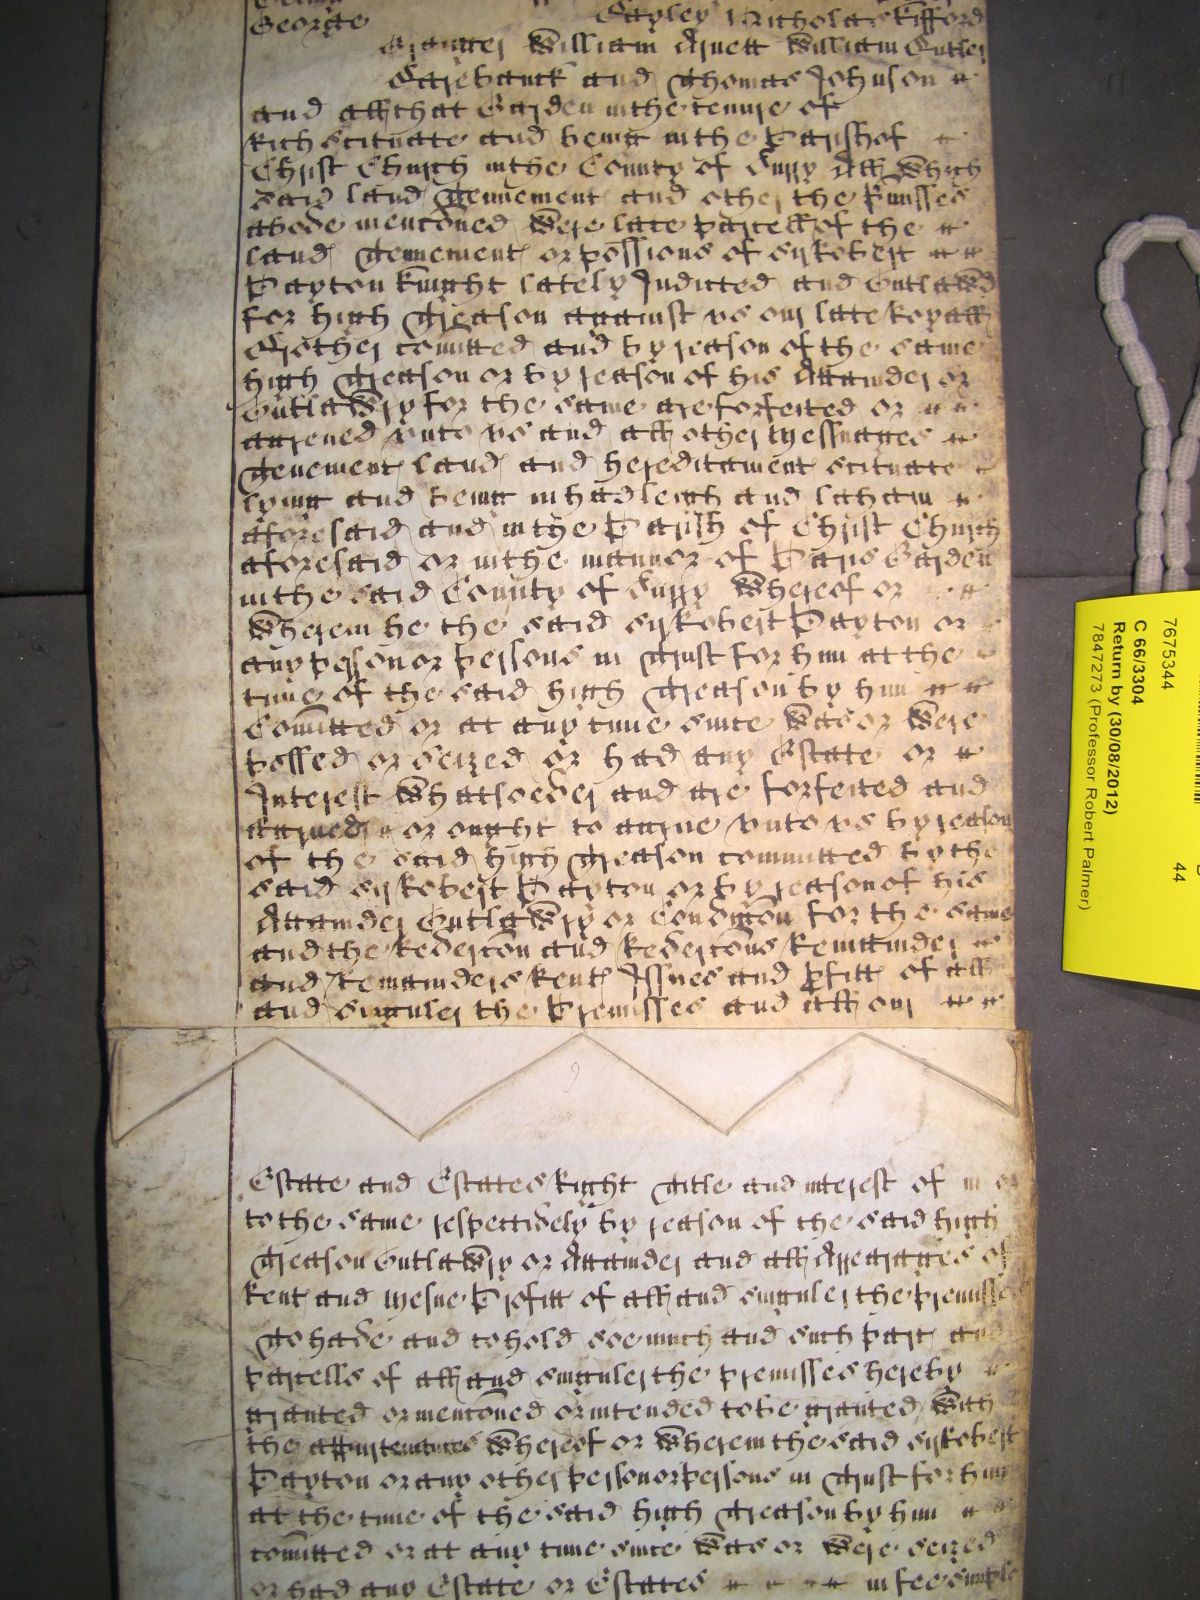 George Cayley Nicholas Kifford
Graunter William Arnett William Cutler
Carebanck and Thomas Johnson
and all that Garden in the tenure of
Rich scituate and being in the Parish of
Christ Church in the County of Surry All which
said Land Tenement and other the Premisses
above menconed were late parcell of the
Land Tennement or possions of Sir Robert
Payton Knight lately Indicted and Outlawd
for high Treason against us our late Royall
Brother comitted and by reason of the same
high Treason or by reason of his Attainder or
Outlawry for the same are forfeited or
acrened unto us and all other Messuages
Tenement Land and Hereditament scituate
lying and being in hadleigh and Laham
aforesaid and in the Parish of Christ Church
aforesaid or in the mannor of Paris Garden
in the said County of Surry Whereof or
Wherein he the said Sir Robert Payton or
any person or persons in Trust for him at the
time of the said high Treason by him
Comitted or at any time since was or were
possed or seized or had any Estate or
Interest Whatsoever and are forfeited and
accrued or ought to accrue unto us by reason
of the said high Treason committed by the
said Sir Robert Payton or by reason of his
Attainder Outlawry or Convicton for the same
and the Revercon and Revercons Remainder
and Remainders Rent Issues and profitt of all
and singuler the Premisses and all our
Estate and Estates Right Title and interest of in or
to the same respectively by reason of the said high
Treason Outlawry or Attainder and all Arrearages of
Rent and Mesne Profitt of all and singuler the premisses
To have and to hold soe much and such part and
parcells of all and singuler the premisses hereby
granted or menconed or intended to be granted with
the appurtenances Whereof or Wherein the said Sir Robert
Payton or any other person or persons in Trust for him
at the time of the said high Treason by him
comitted or at any time since was or were seized
or had any Estate or Estates in fee simple
7675344
44
C 66/3304
Return by (30/08/2012)
7847273 (Professor Robert Palmer)